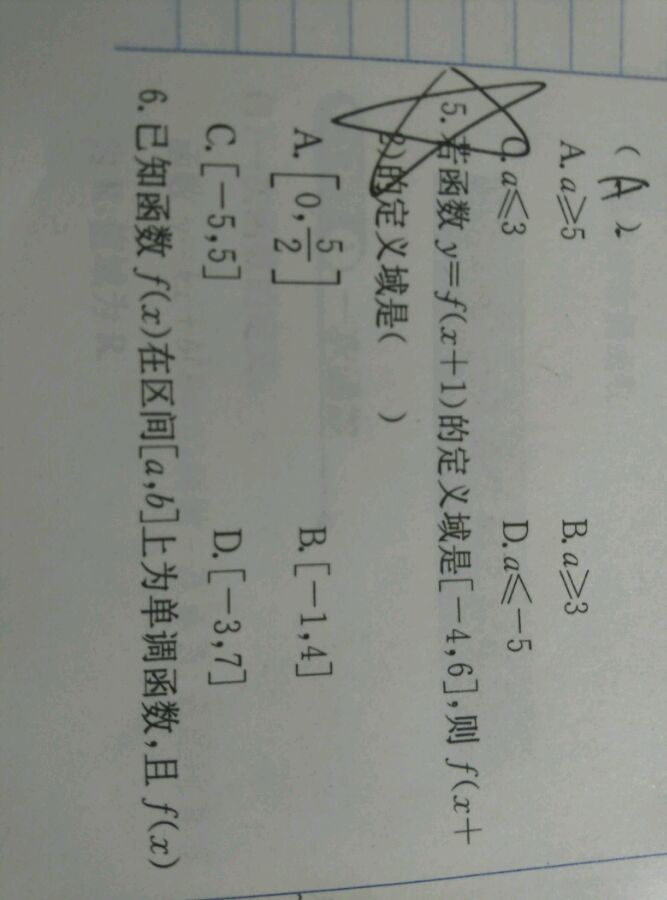 ( A )
A.a≥5 B.a≥3
C.a≤3 D.a≤-5
5.若函数 y=f(x+1)的定义域是[-4,6],则 f(x+
2)的定义域是( )
A.[0,5/2] B.[-1,4]
C.[-5,5] D.[-3,7]
6.已知函数 f(x)在区间[a,b]上为单调函数,且 f(x)